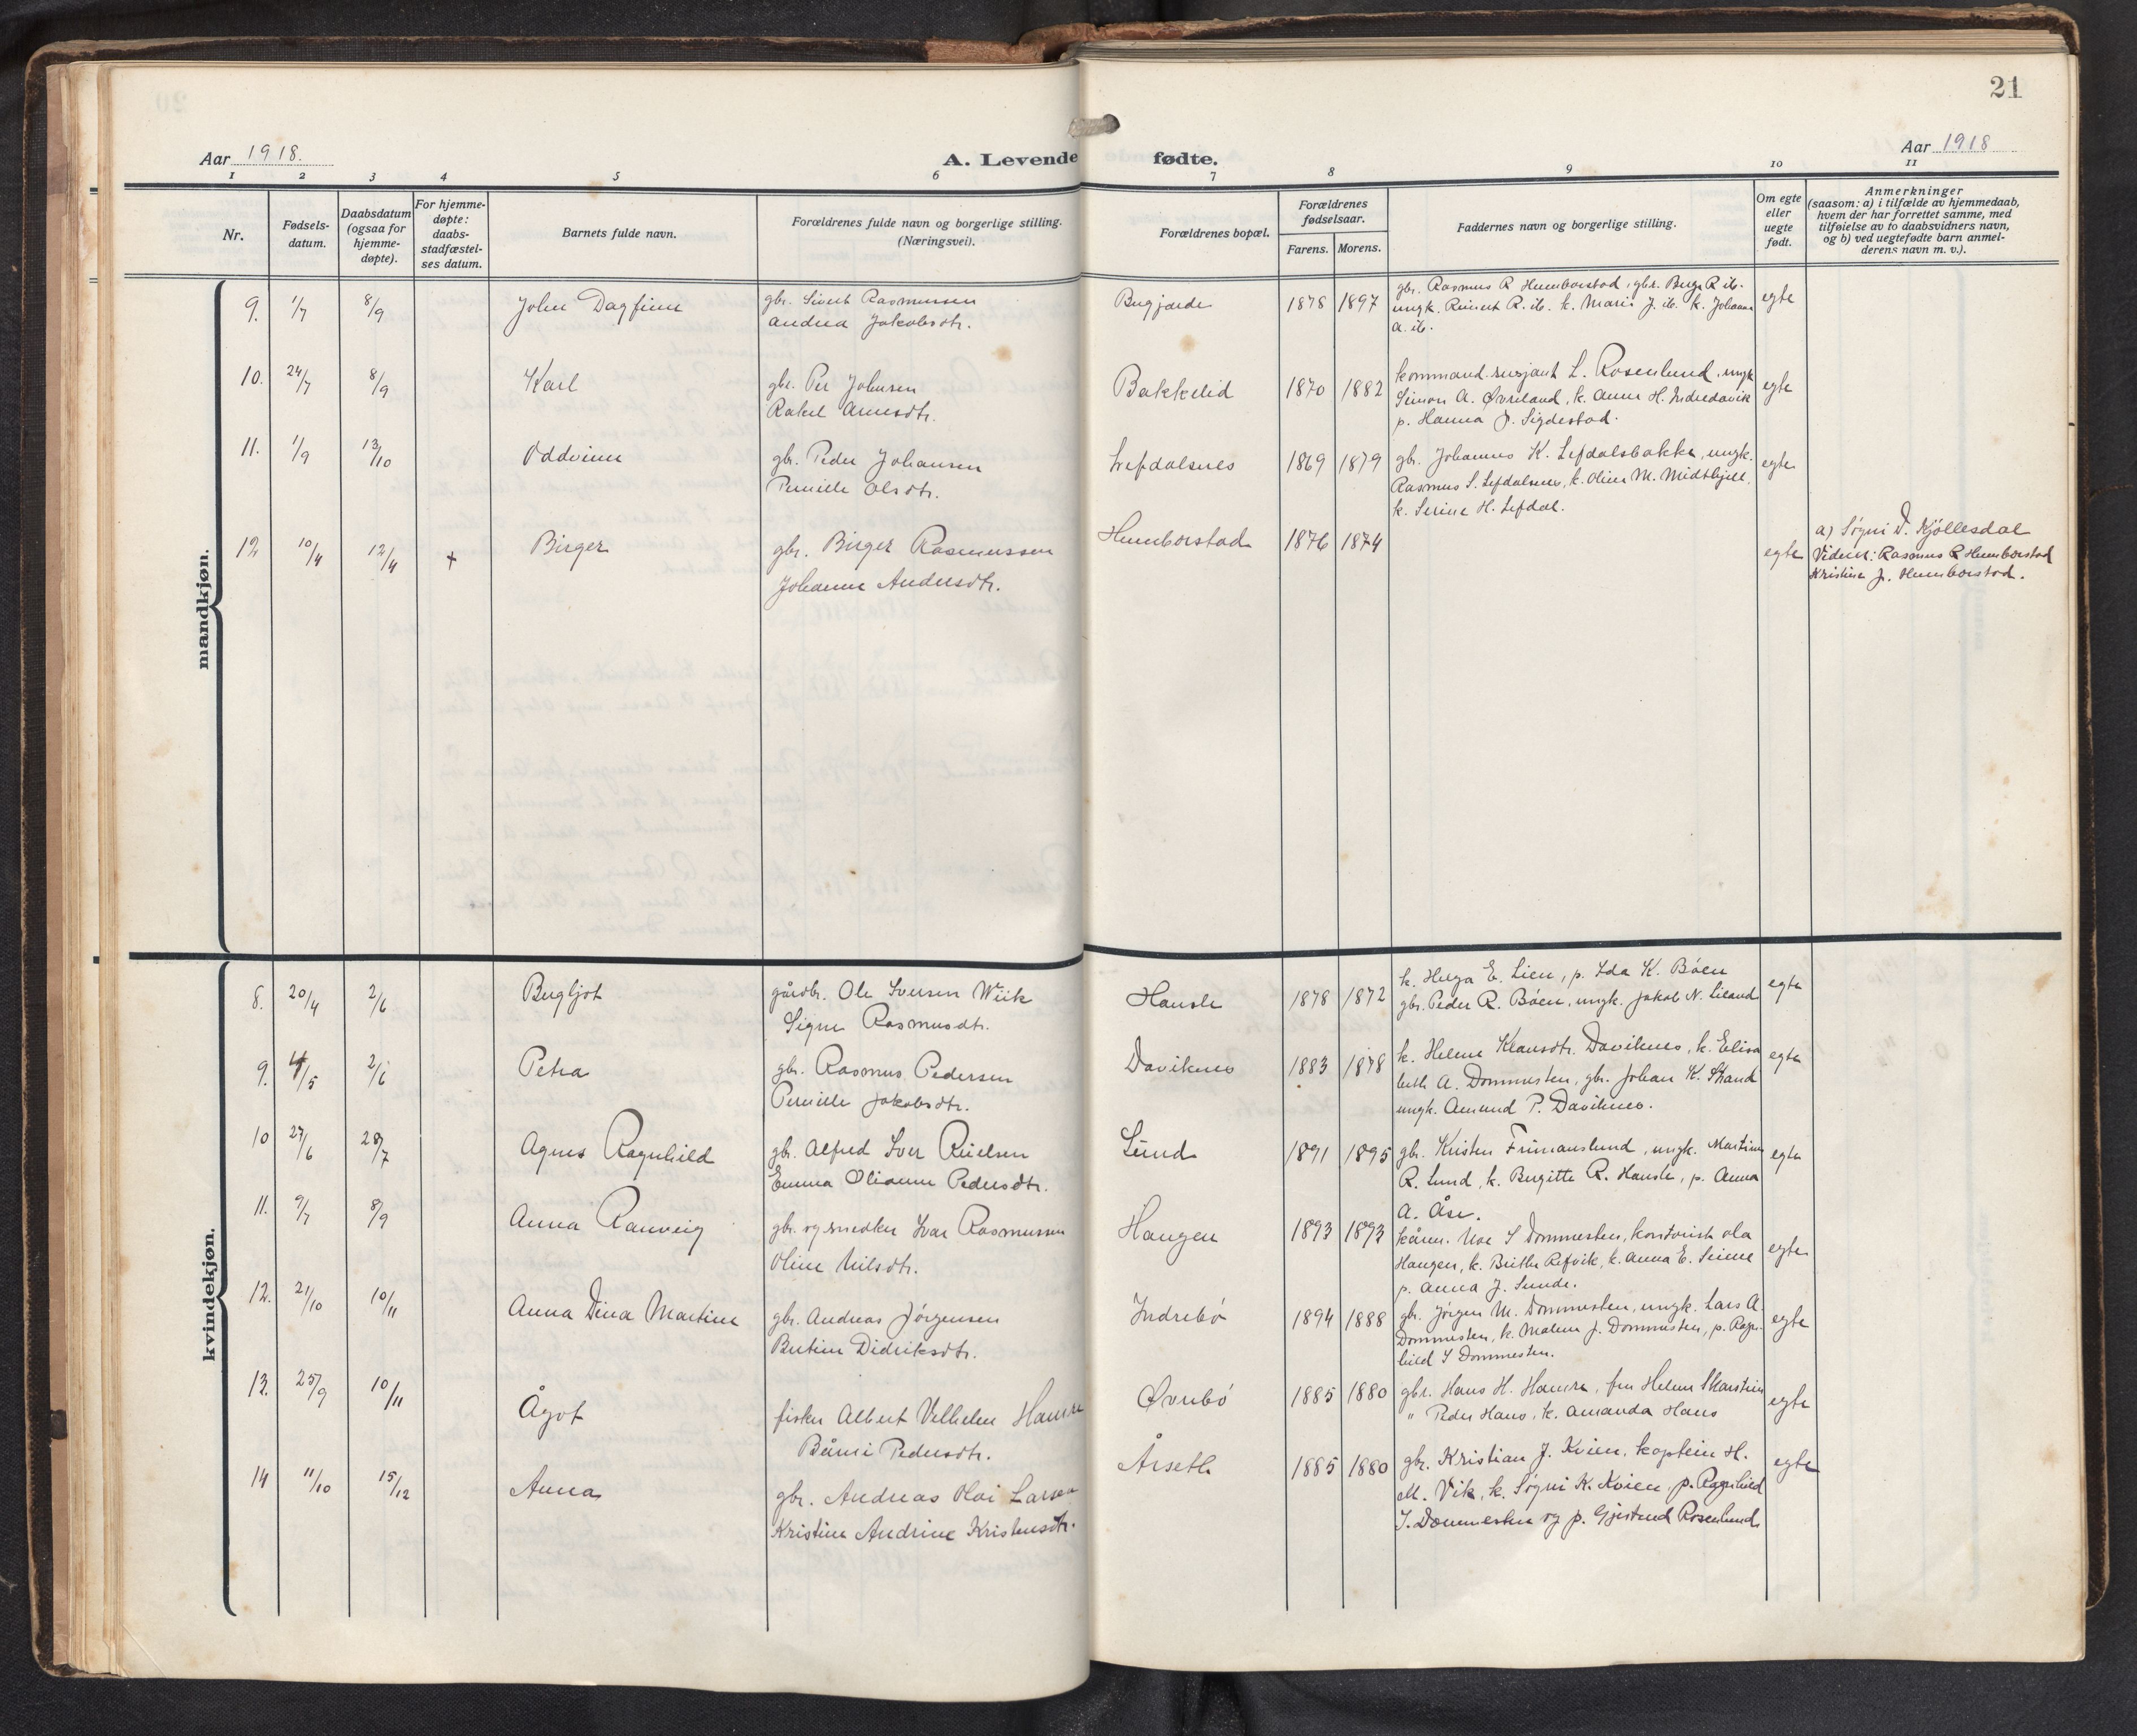 21
Aar 1918.
A. Levende fødte.
Aar 1918
1 2 3 4 5 6 7 8 9 10 11
Nr.
Fødsels-
datum.
Daabsdatum
(ogsaa for
hjemme-
døpte).
For hjemme-
døpte:
daabs-
stadfæstel-
ses datum.
Barnets fulde navn.
Forældrenes fulde navn og borgerlige stilling.
(Næringsvei).
Forældrenes bopæl.
Forældrenes
fødselsaar.
Farens. Morens.
Faddernes navn og borgerlige stilling.
Om egte
eller
uegte
født.
Anmerkninger
(saasom: a) i tilfælde av hjemmedaab,
hvem der har forrettet samme, med
tilføielse av to daabsvidners navn,
og b) ved uegtefødte barn anmel-
derens navn m. v.).
mandkjøn.
9. 1/7 8/9 John Dagfinn
gbr. Sivert Rasmussen
Andrea Jakobsdtr.
1878 1897
gbr. Rasmus R Humborstad, gbr. Birge R ib.
ungk. Reinert R. ib. k. Marie J. ib. k. Johanne
A. ib.
egte
10. 24/7 8/9 Karl
gbr. Per Johnsen
Rakel Arnesdtr.
Bakkelid 1870 1882
kommand.sersjant L. Rosenlund, ungk
Simon A. Øvreland, k. Anne H. Indredavik
p. Hanna J. Sigdestad.
egte
11. 1/9 13/10 Oddvinn
gbr. Peder Johansen
Pernille Olsdtr.
Lefdalsnes 1869 1879
gbr. Johannes K. Lefdalsbakke, ungk.
Rasmus S. Lefdalsnes, k. Oline M. Midthjell,
k. Serine H. Lefdal.
egte
12 10/4 12/4 + Birger
gbr. Birger Rasmussen
Johanne Andersdtr.
Humborstad 1876 1874
egte
a) Søgni D. Kjøllesdal
Vidner: Rasmus R Humborstad
Kristine J. Humborstad.
kvindekjøn.
8. 20/4 2/6 Bergljot
gårdbr. Ole Iversen Wiik
Signe Rasmusdtr.
Hausle 1878 1872
k. Helga E. Lien, p. Ida K. Bøen
gbr. Peder R. Bøen, ungk. Jakob N. Liland
egte
9. 4/5 2/6 Petra
gbr. Rasmus Pedersen
Pernille Jakobsdtr.
Daviknes 1883 1878
k. Helene Klausdtr. Daviknes, k. Elisa
beth A. Dommesten, gbr. Johan K. Strand
ungk. Amund P. Daviknes.
egte
10 27/6 28/7 Agnes Ragnhild
gbr. Alfred Iver Rielsen
Emma Olianne Pedersdtr.
Lund 1891 1895
gbr. Kristen Frimanslund, ungk. Martinus
R. Lund, k. Birgitte R. Hausle, p. Anna
A. Åse.
egte
11. 9/7 8/9 Anna Ranveig
gbr. og snedker Ivar Rasmussen
Oline Nilsdtr.
Haugen 1893 1893
kårm. Noe S Dommesten, kontorist Ola
Haugen, k. Brithe Refvik, k. Anna E. Seime
p. Anna J. Sunde.
egte
12. 21/10 10/11 Anna Dina Martine
gbr. Andreas Jørgensen
Bertine Didriksdtr.
Indrebö 1894 1888
gbr. Jørgen M. Dommesten, ungk. Lars A.
Dommesten, k. Malene J. Dommesten, p. Ragn-
hild S Dommesten.
egte
13. 25/9 10/11 Ågot
fisker Albert Vilhelm Hamre
Pedersdtr.
Øvrebö 1885 1880
gbr. Hans H. Hamre, fru Helene Skarstein
" Peder Haus, k. Amanda Haus
egte
14 11/10 15/12 Anna
gbr. Andreas Olai Larsen
Kristine Andrine Kristensdtr.
Årseth 1885 1880
gbr. Kristian J. Kvien, kaptein H.
M. Vik, k. Søgni K. Kvien, p. Ragnhild
S. Dommesten og p. Gjertrud Rosenlund
egte